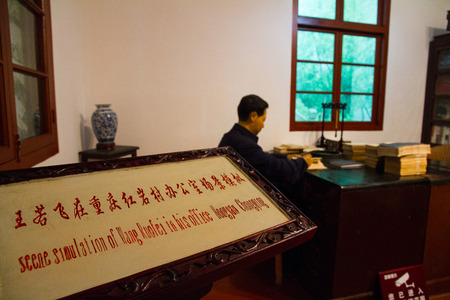 王若飞在重庆红岩村办公室场景模拟
scene simulation of Wang Ruofei in his office Hongyan Chongqing